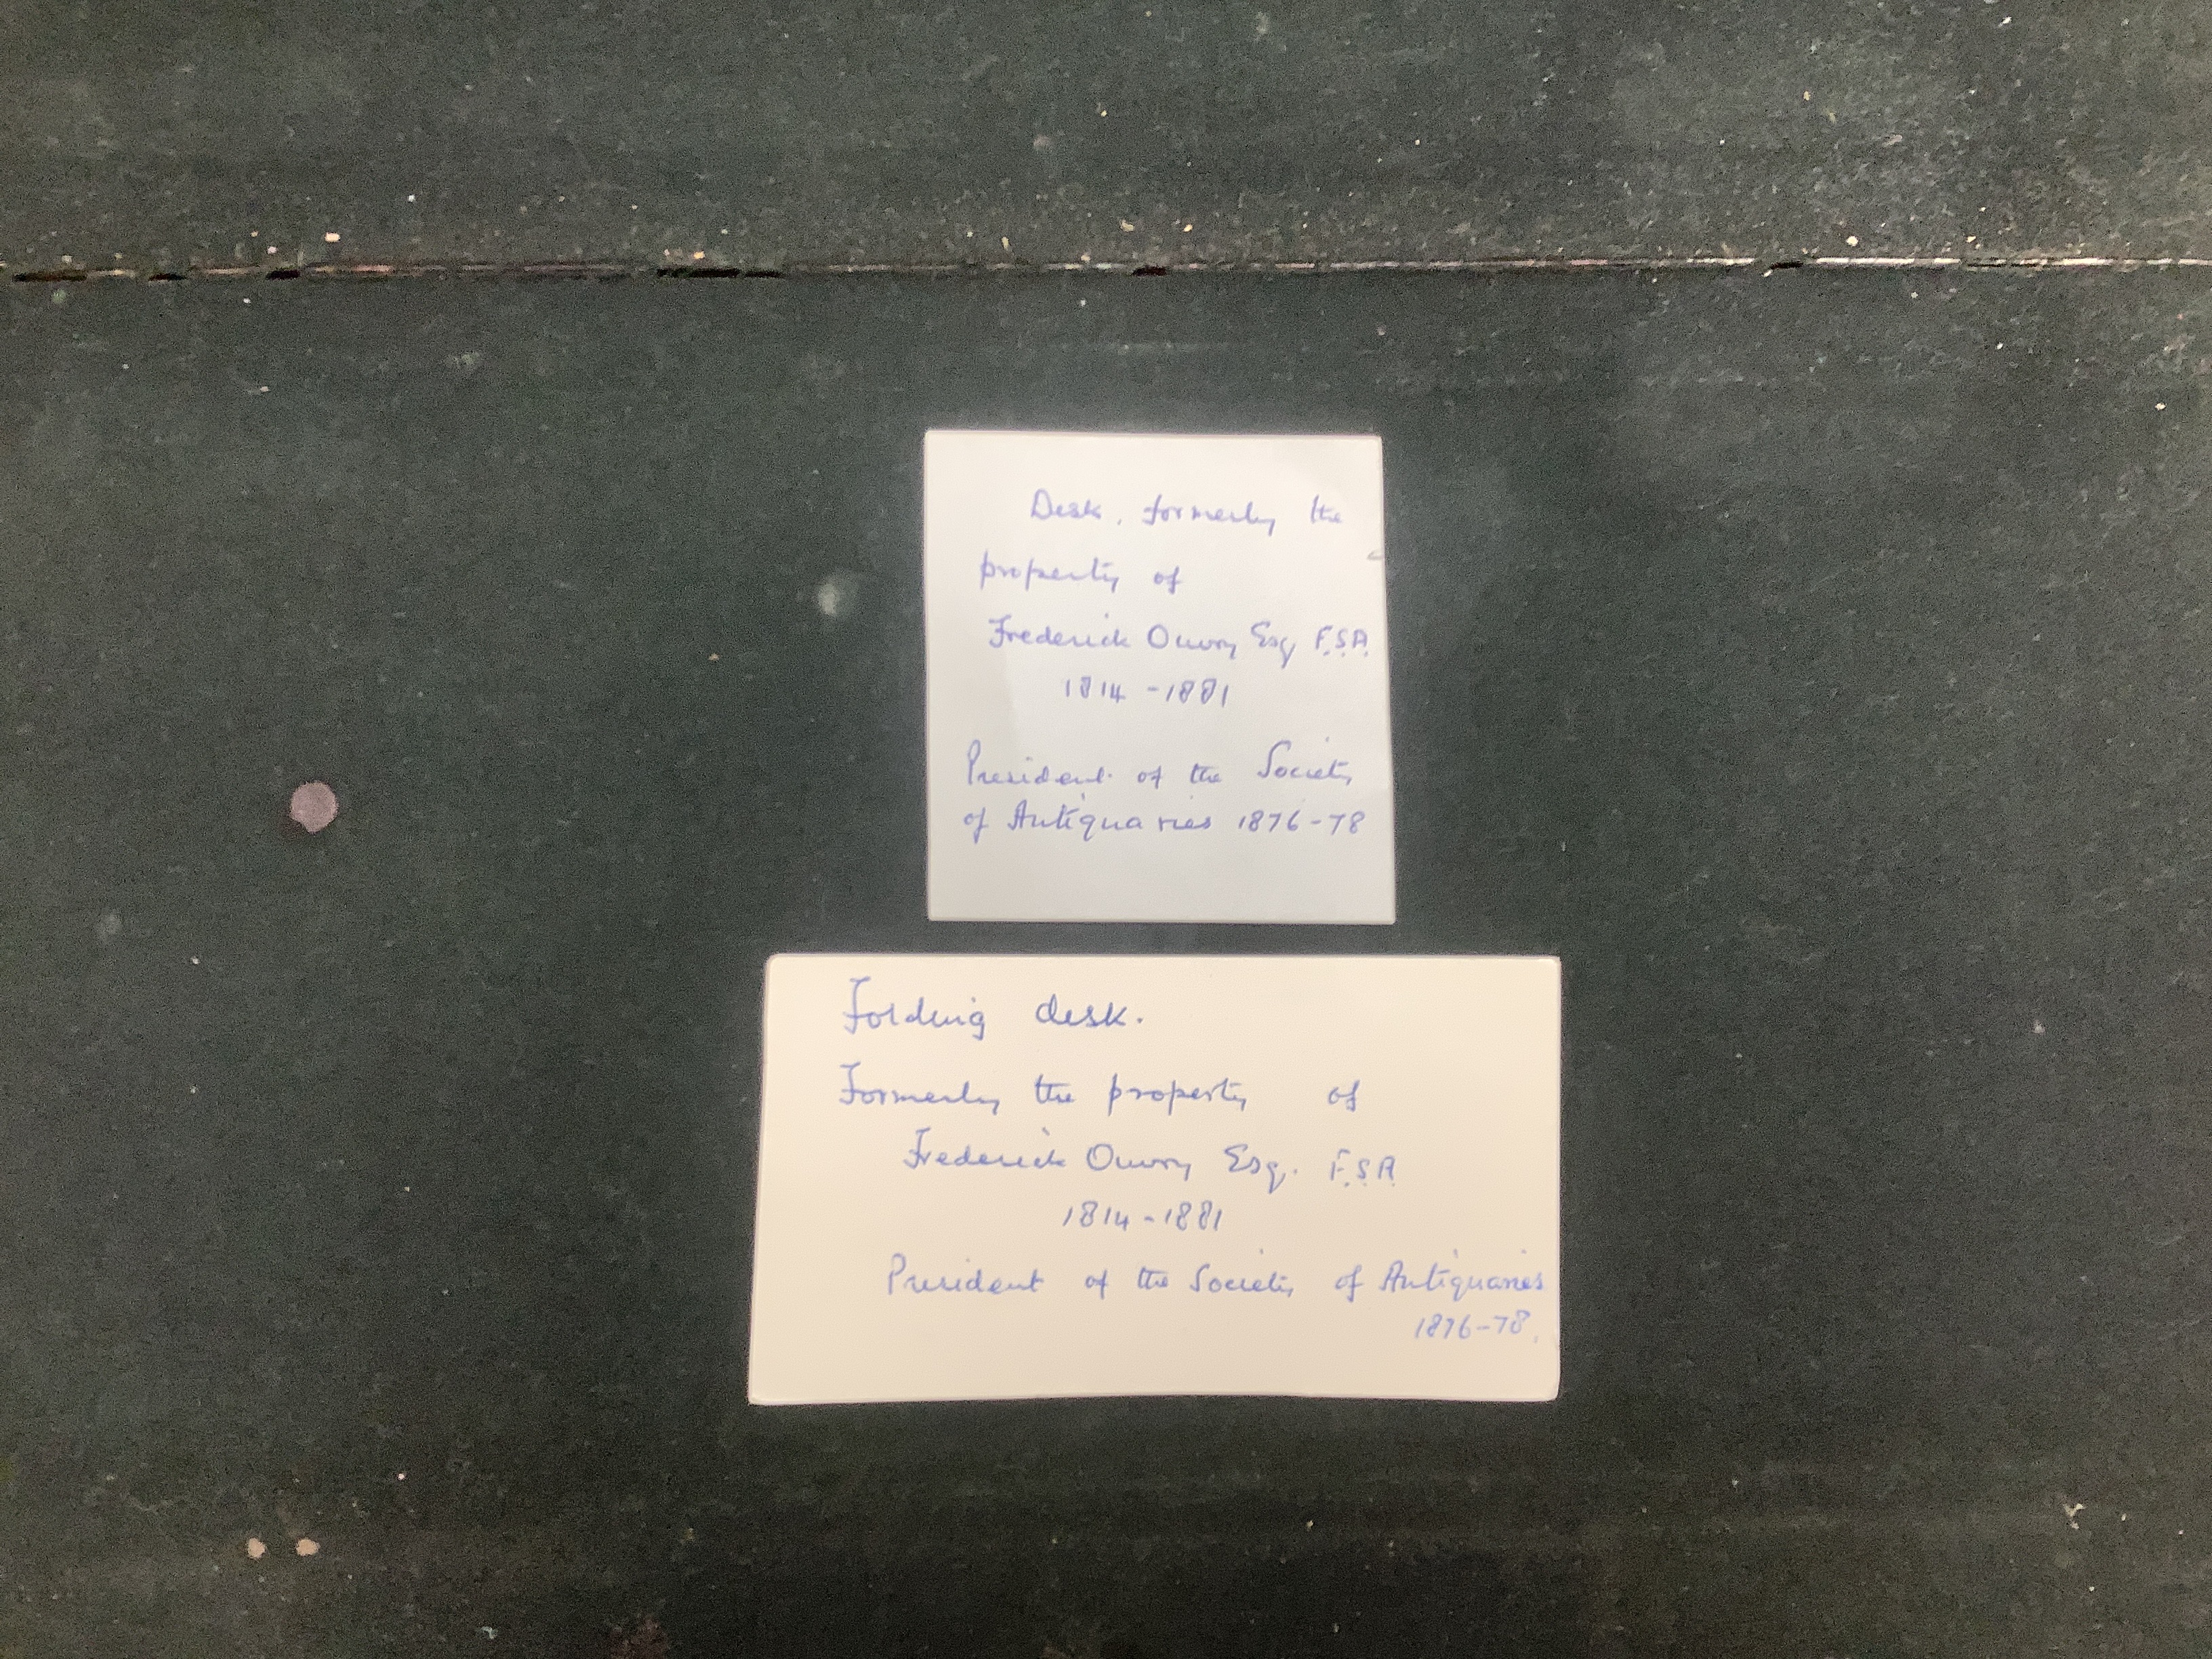 Desk, formerly the
property of
Frederick Ouvry Esq F.S.A.
1814 - 1881
President of the Society
of Antiquaries 1876-78
Folding desk.
Formerly the property of
Frederick Ouvry Esq. F.S.A.
1814-1881
President of the Society of Antiquaries
1876-78.